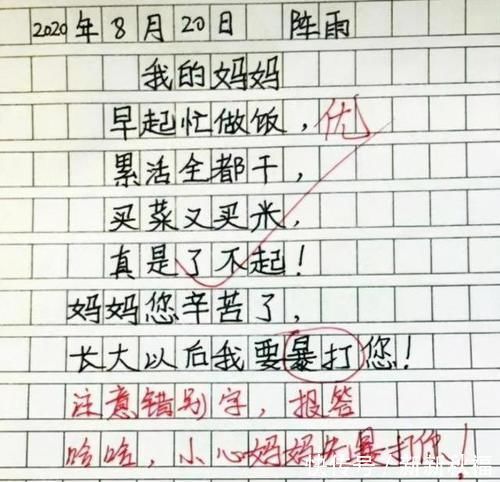 2020年8月20日 阵雨
我的妈妈
早起忙做饭，优
累活全都干，
买菜又买米，
真是了不起！
妈妈您辛苦了，
长大以后我要暴打您！
注意错别字，报答
哈哈，小心妈妈先暴打你！